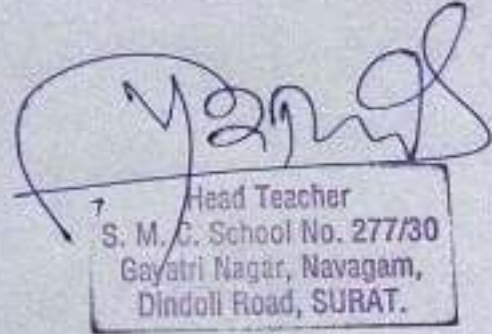 Head Teacher
S. M. C. School No. 277/30
Gayatri Nagar, Navagam,
Dindoli Road, SURAT.